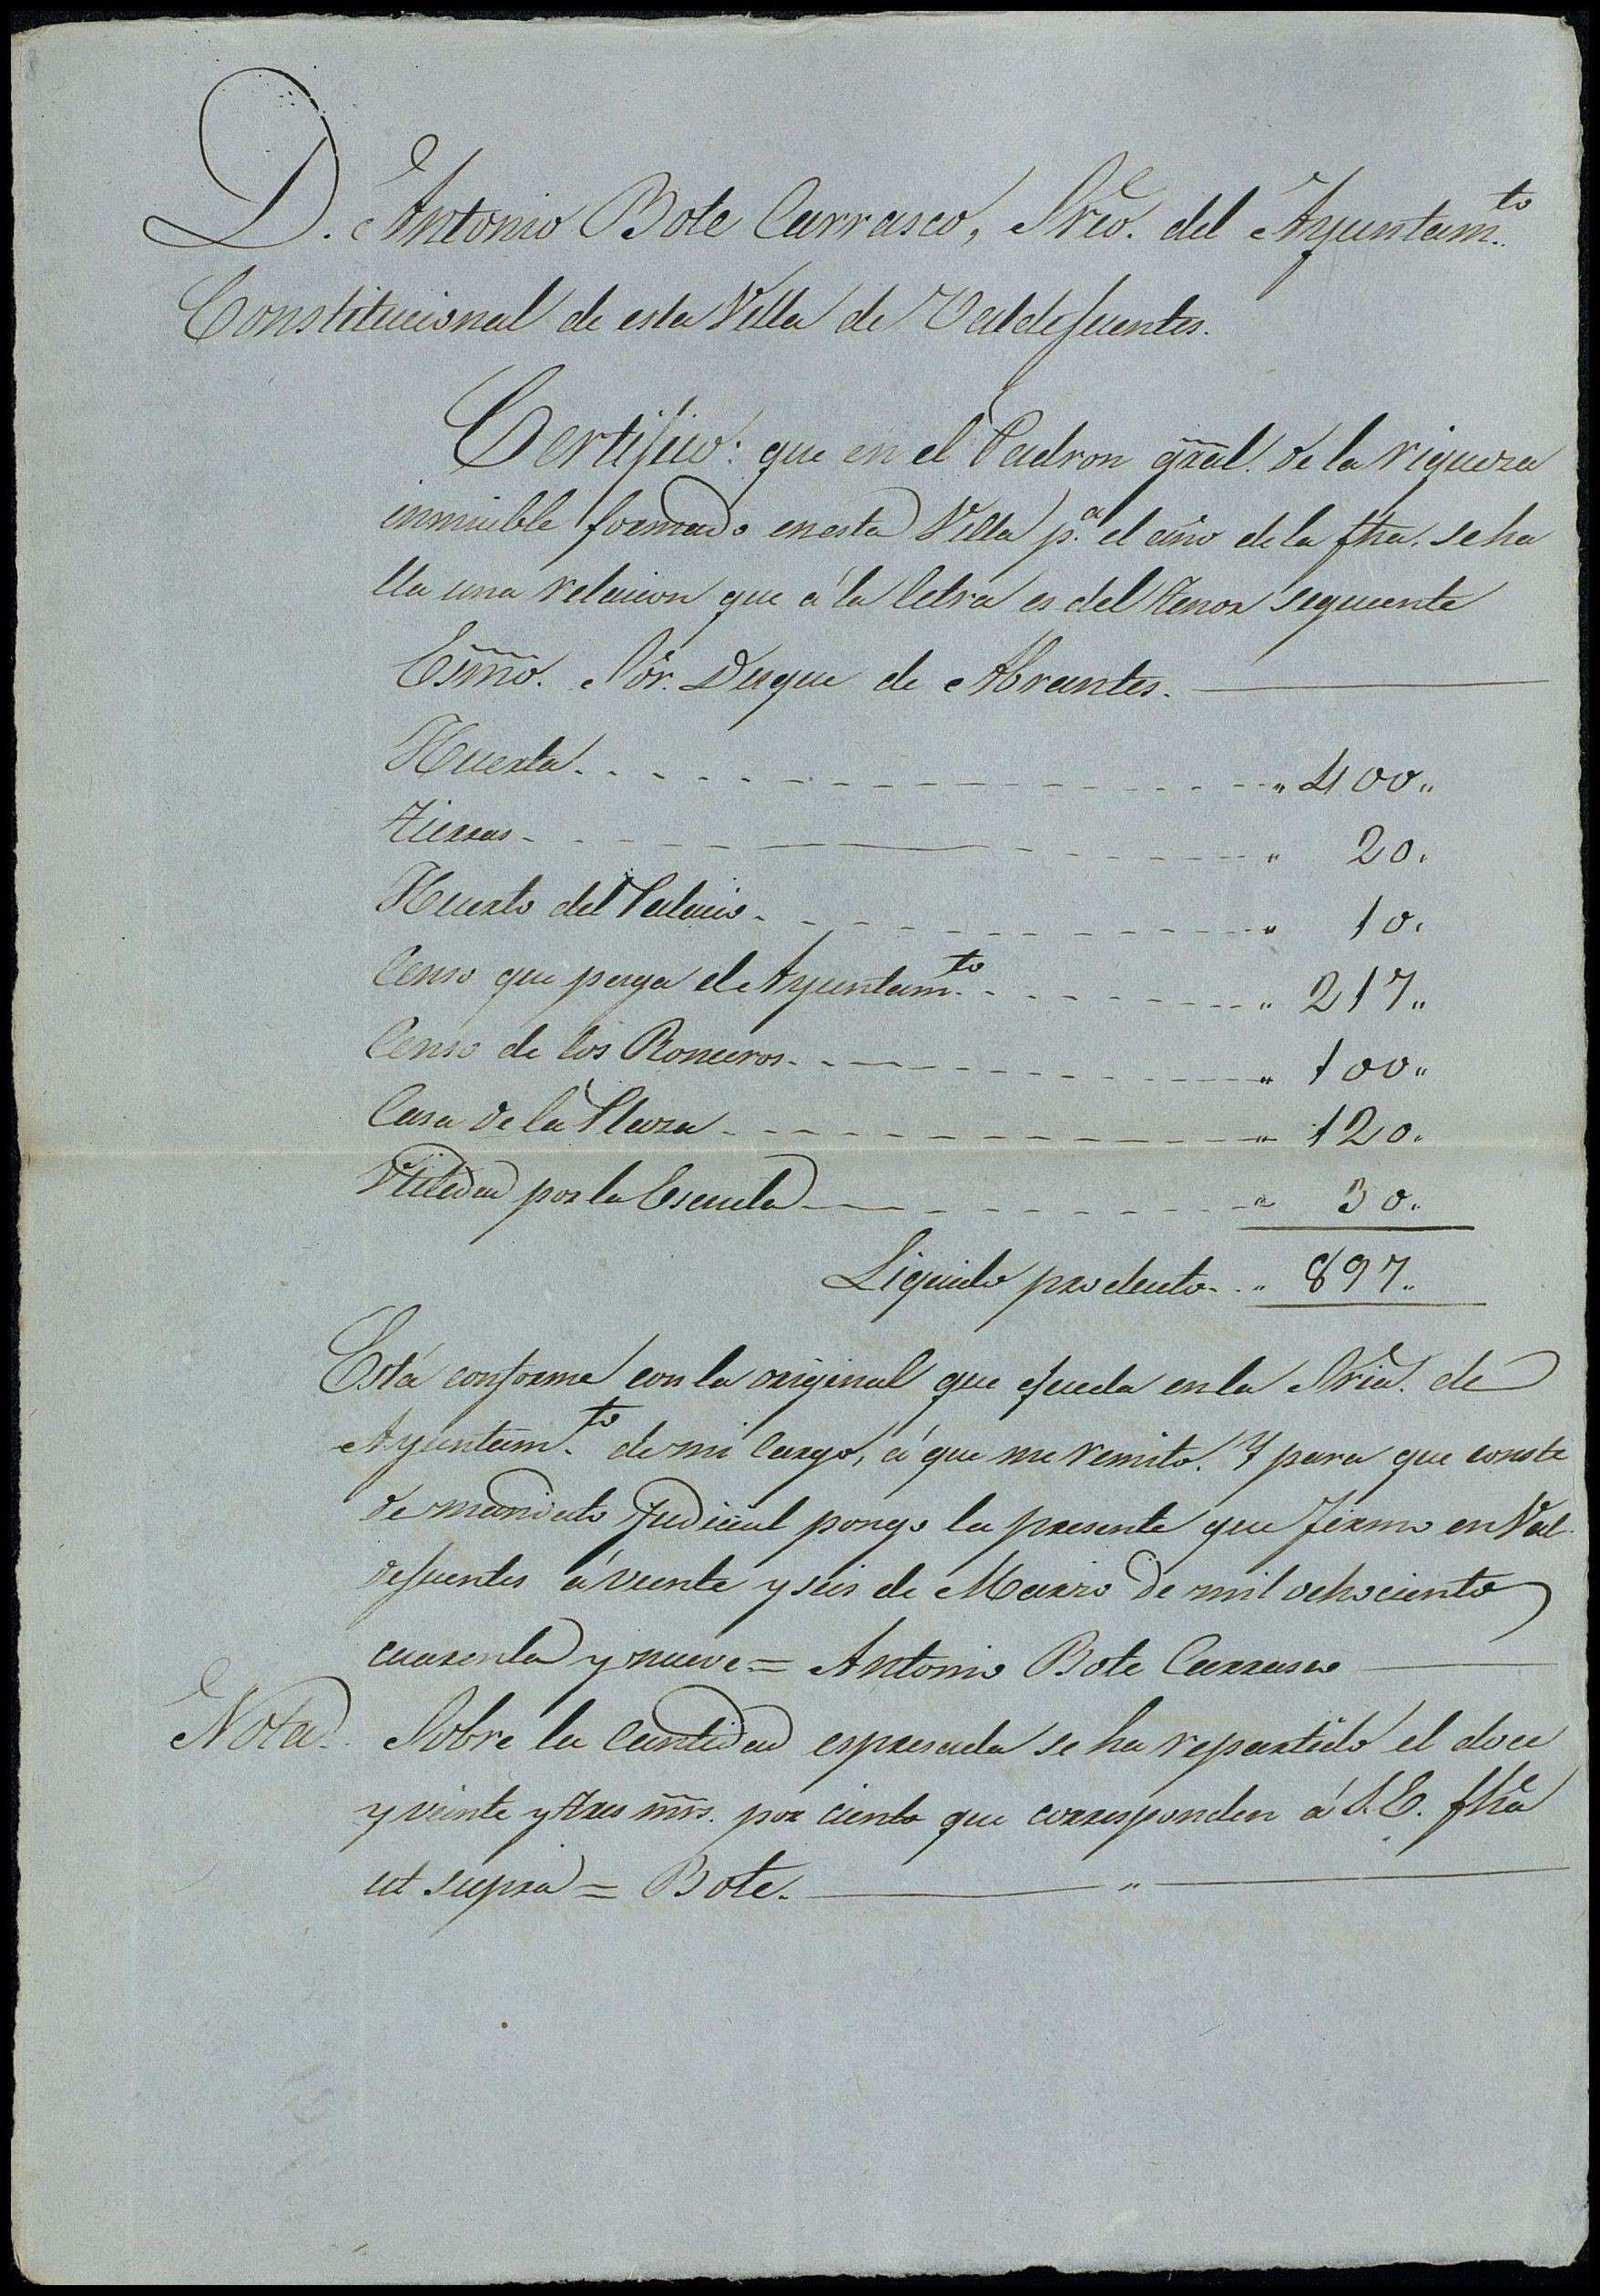 D. Antonio Bote Carrasco, Srio. del Ayuntam.to
Constitucional de esta Villa de Valdefuentes.
Certifico: que en el Padron gral. de la riqueza
inmuible formado en esta Villa p.a el año de la fha. se ha
lla una relacion que á la letra es del tenor seguiente
Esmo. Sór. Duque de Abrantes.
Huerta " 400 "
tierras " 20 "
Huerto del Palacio " 10 "
Censo que paga el Ayuntam.to " 217 "
Censo de los Romeros " 100 "
Casa de la Plaza " 120 "
Utilidad por la Escuela " 30 "
Liquido producto " 897 "
Está conforme con la original que queda en la Sria. de
Ayuntam.to de mi cargo, á que me remito. Y para que conste
de mandato Judicial pongo la presente que firmo en Val-
defuentes á veinte y seis de Marzo de mil ochociento
cuarenta y nueve = Antonio Bote Carrasco
Nota. Sobre la cantidad espresada se ha repartido el doce
y veinte y tres mrs. por ciento que corresponden á S.E. fha
ut supra = Bote. "